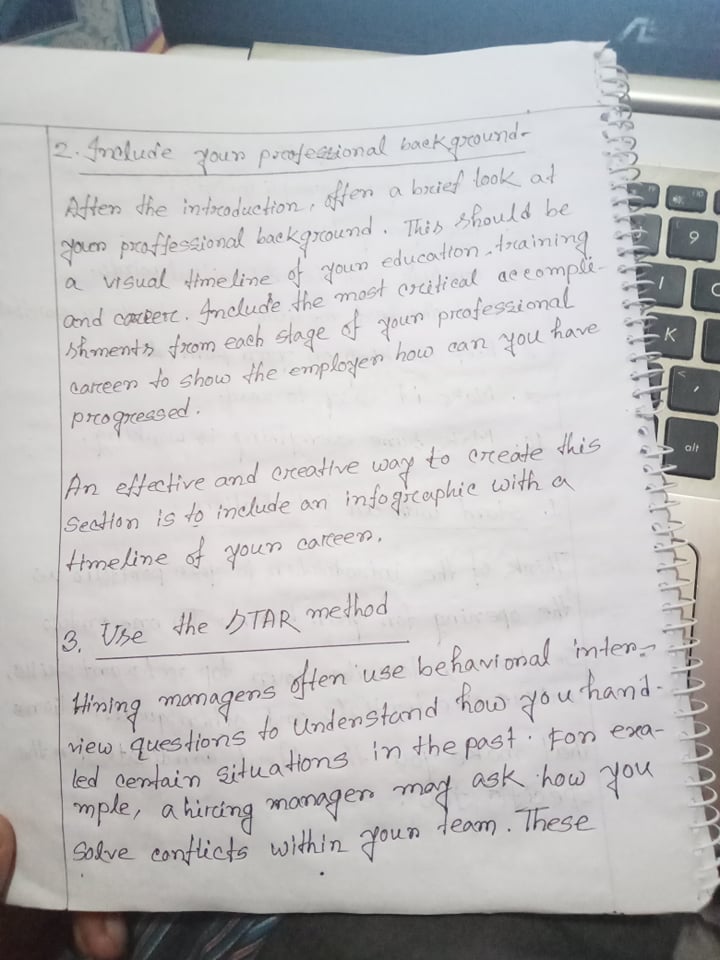 2. Include your professional background-
After the introduction, offer a brief look at
your proffessional background. This should be
a visual timeline of your education, training
and career. Include the most critical accompli-
shments from each stage of your professional
career to show the employer how can you have
progressed.
An effective and creative way to create this
section is to include an infographic with a
timeline of your career.
3. Use the STAR method
Hiring managers often use behavional inter-
view questions to understand how you hand-
led certain situations in the past. For exa-
mple, a hiring manager may ask how you
solve conflicts within your team. These
9
K
alt